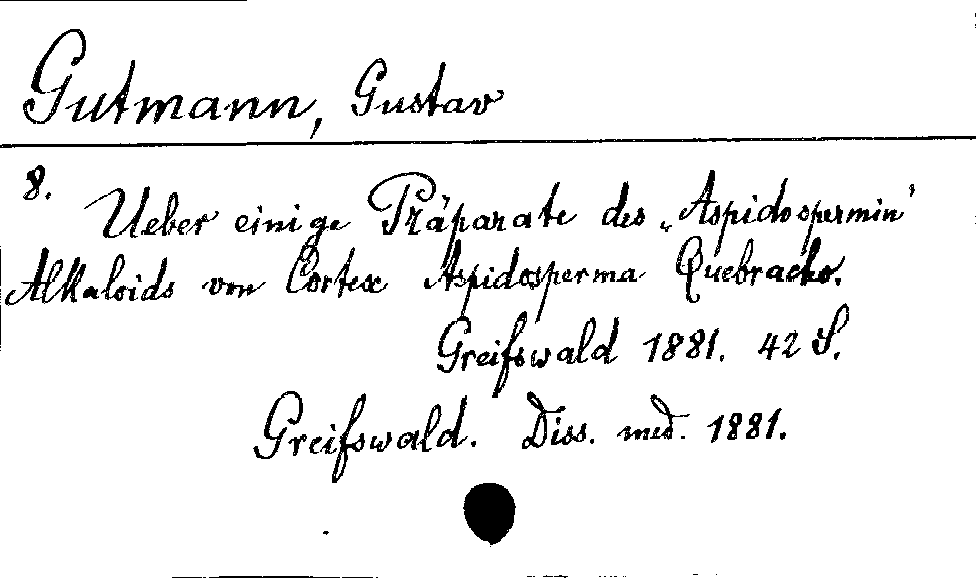 Gutmann, Gustav
8.
Ueber einige Präparate des „Aspidospermin'
Alkaloids von Cortex Aspidosperma Quebracho.
Greifswald 1881. 42 S.
Greifswald. Diss. med. 1881.